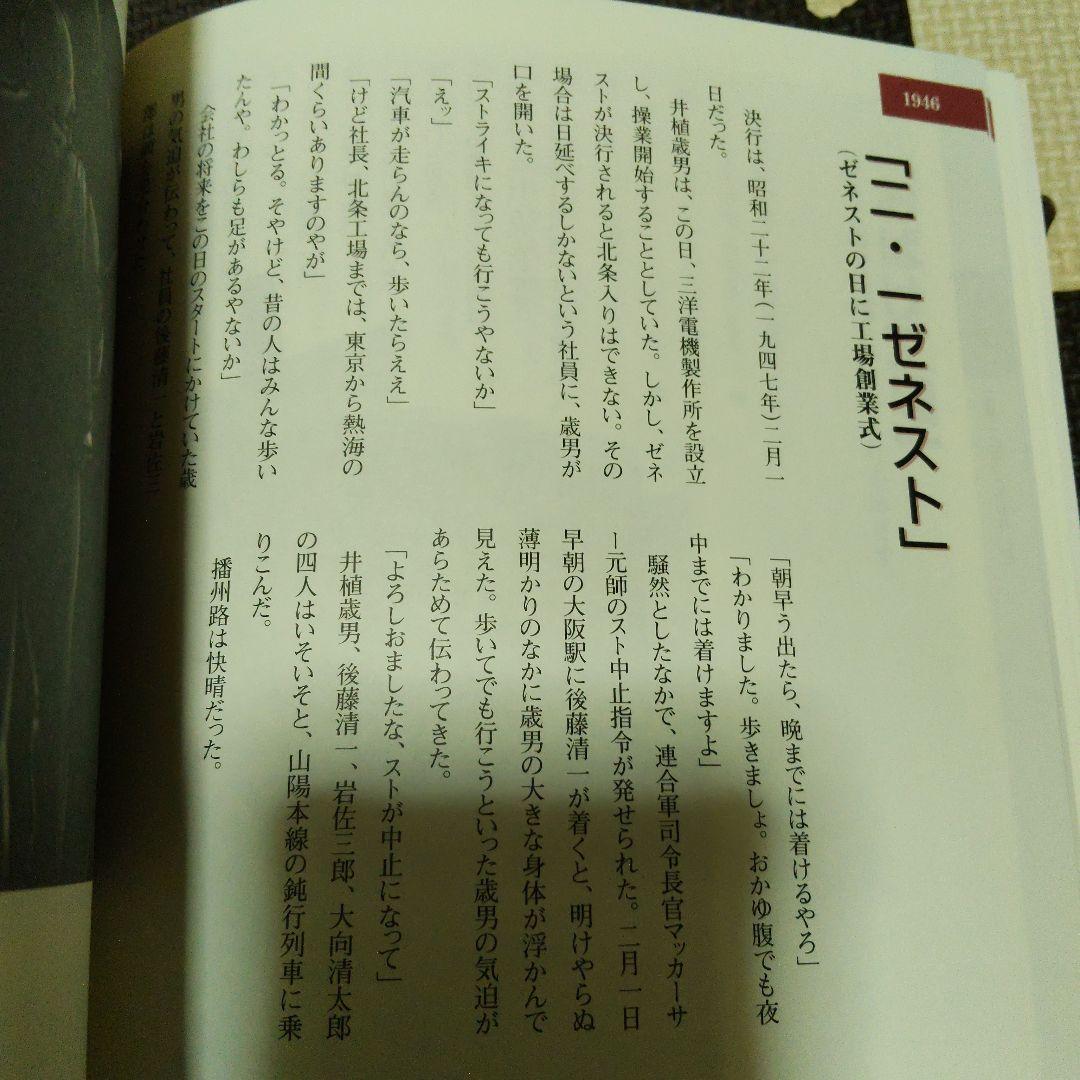 1946
「二・一ゼネスト」
(ゼネストの日に工場創業式)
決行は、昭和二十二年(一九四七年)二月一
日だった。
井植歳男は、この日、三洋電機製作所を設立
し、操業開始することとしていた。しかし、ゼネ
ストが決行されると北条入りはできない。その
場合は日延べするしかないという社員に、歳男が
口を開いた。
「ストライキになっても行こうやないか」
「えッ」
「汽車が走らんのなら、歩いたらええ」
「けど社長、北条工場までは、東京から熱海の
間くらいありますのやが」
「わかっとる。そやけど、昔の人はみんな歩い
たんや。わしらも足があるやないか」
会社の将来をこの日のスタートにかけていた歳
男の気迫が伝わって、社員の後藤清一と岩佐三
「朝早う出たら、晩までには着けるやろ」
「わかりました。歩きましょ。おかゆ腹でも夜
中までには着けますよ」
騒然としたなかで、連合軍司令長官マッカーサ
ー元師のスト中止指令が発せられた。二月一日
早朝の大阪駅に後藤清一が着くと、明けやらぬ
薄明かりのなかに歳男の大きな身体が浮かんで
見えた。歩いてでも行こうといった歳男の気迫が
あらためて伝わってきた。
「よろしおましたな、ストが中止になって」
井植歳男、後藤清一、岩佐三郎、大向清太郎
の四人はいそいそと、山陽本線の鈍行列車に乗
りこんだ。
播州路は快晴だった。